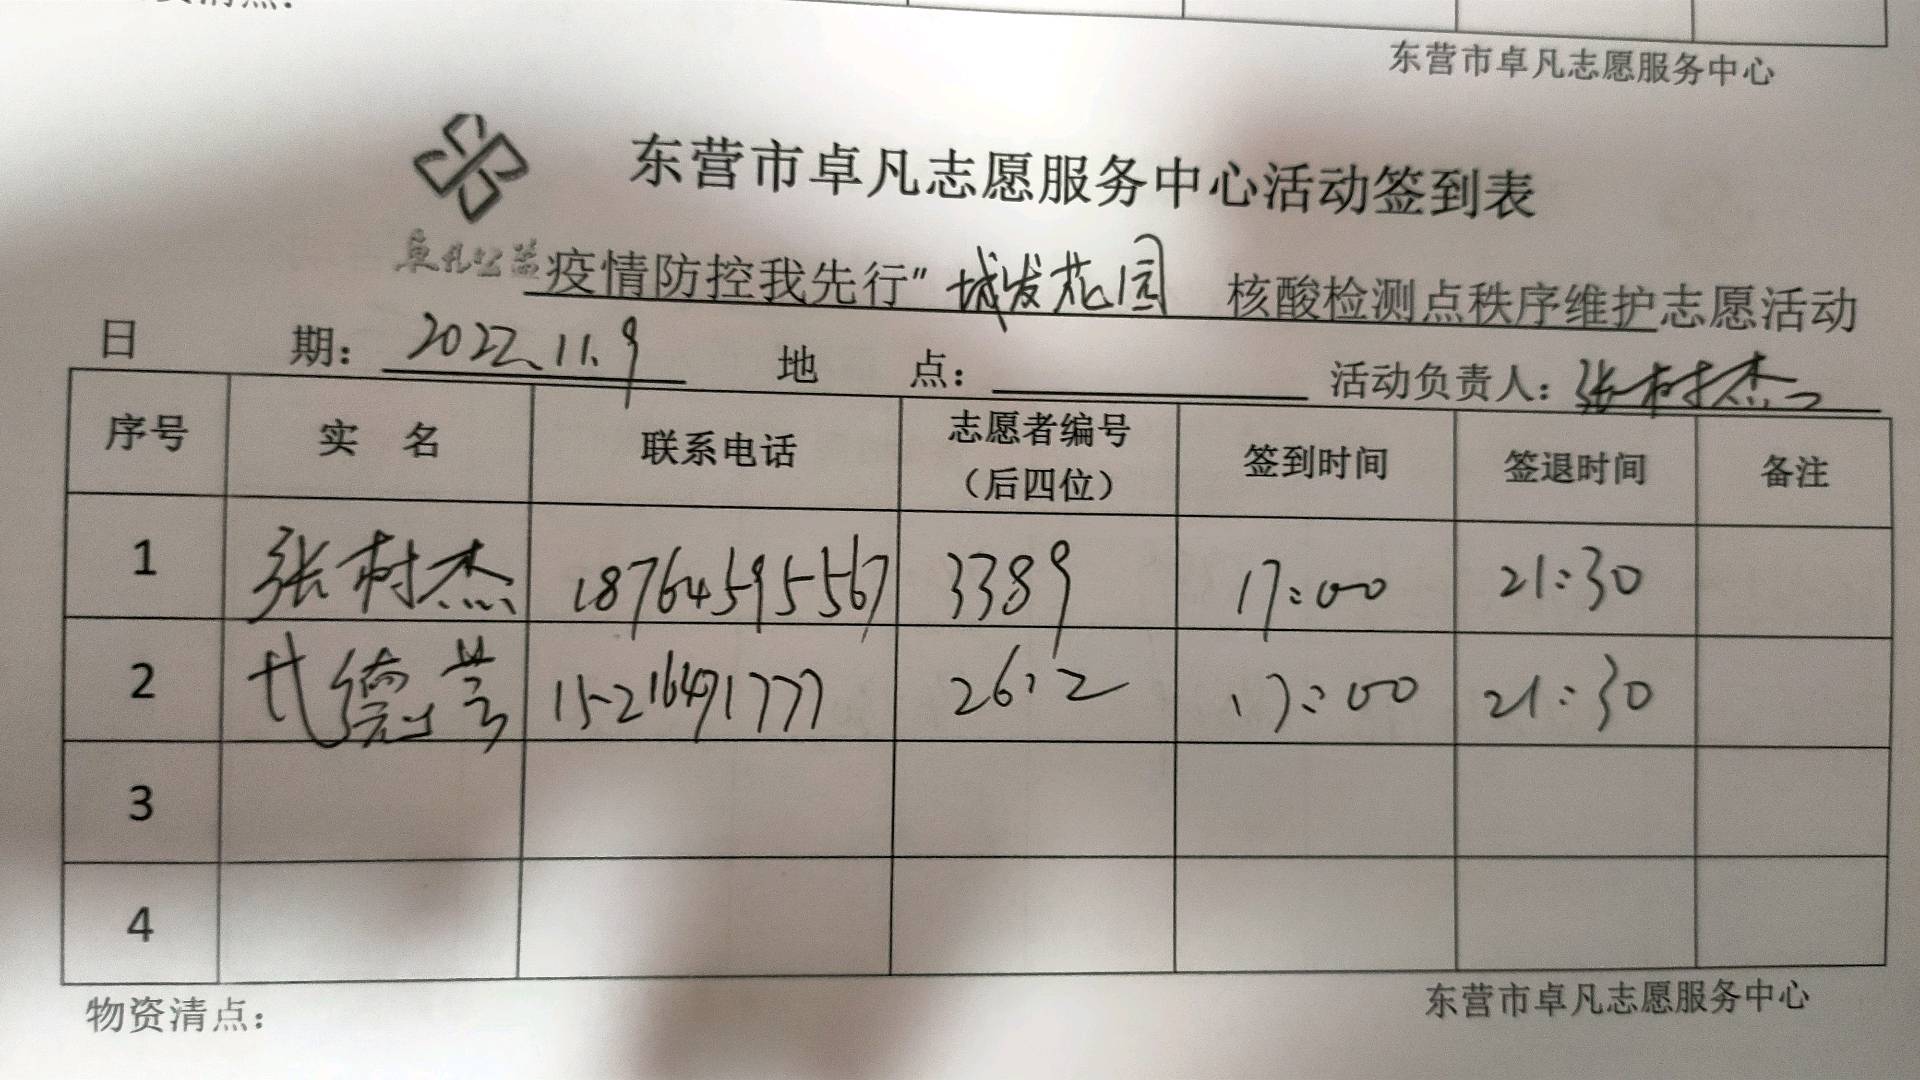 东营市卓凡志愿服务中心
东营市卓凡志愿服务中心活动签到表
卓凡公益
疫情防控我先行”城发花园 核酸检测点秩序维护志愿活动
日 期：2022.11.9 地 点： 活动负责人：张树杰
序号 实 名 联系电话 志愿者编号（后四位） 签到时间 签退时间 备注
1 张树杰 18764595567 3389 17:00 21:30
2 代德芸 15216491777 2612 17:00 21:30
3
4
物资清点： 东营市卓凡志愿服务中心